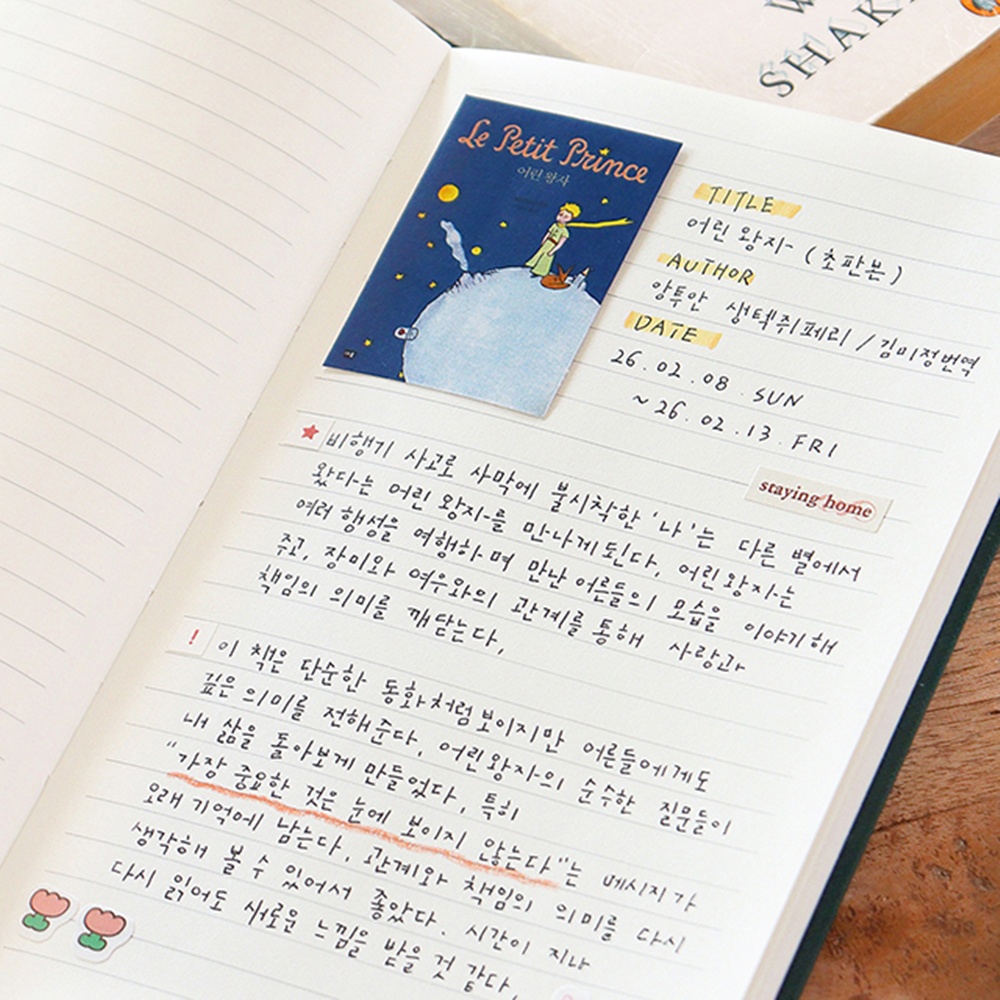 SHAK
Le Petit Prince
어린 왕자
TITLE
어린 왕자 (초판본)
AUTHOR
앙투안 생텍쥐페리 / 김미정번역
DATE
26.02.08. SUN
~26.02.13. FRI
staying home
비행기 사고로 사막에 불시착한 '나'는 다른 별에서
왔다는 어린 왕자를 만나게 된다. 어린왕자는
여러 행성을 여행하며 만난 어른들의 모습을 이야기해
주고, 장미와 여우와의 관계를 통해 사랑과
책임의 의미를 깨닫는다.
! 이 책은 단순한 동화처럼 보이지만 어른들에게도
깊은 의미를 전해준다. 어린왕자의 순수한 질문들이
내 삶을 돌아보게 만들었다. 특히
"가장 중요한 것은 눈에 보이지 않는다"는 메시지가
오래 기억에 남는다. 관계와 책임의 의미를 다시
생각해 볼 수 있어서 좋았다. 시간이 지나
다시 읽어도 새로운 느낌을 받을 것 같다.